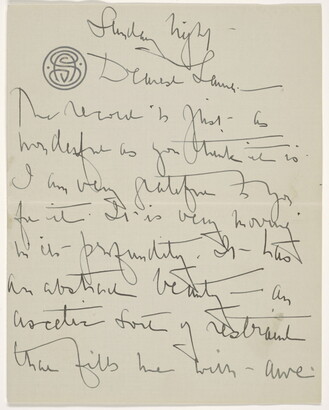 Sunday night -
Dearest
The record is just - as
wonderful as you think it is.
I am very grateful to you
for it. It is very moving
in its - profundity. It has
an abstract beauty - an
ascetic sort of restraint
that fills me with - awe.